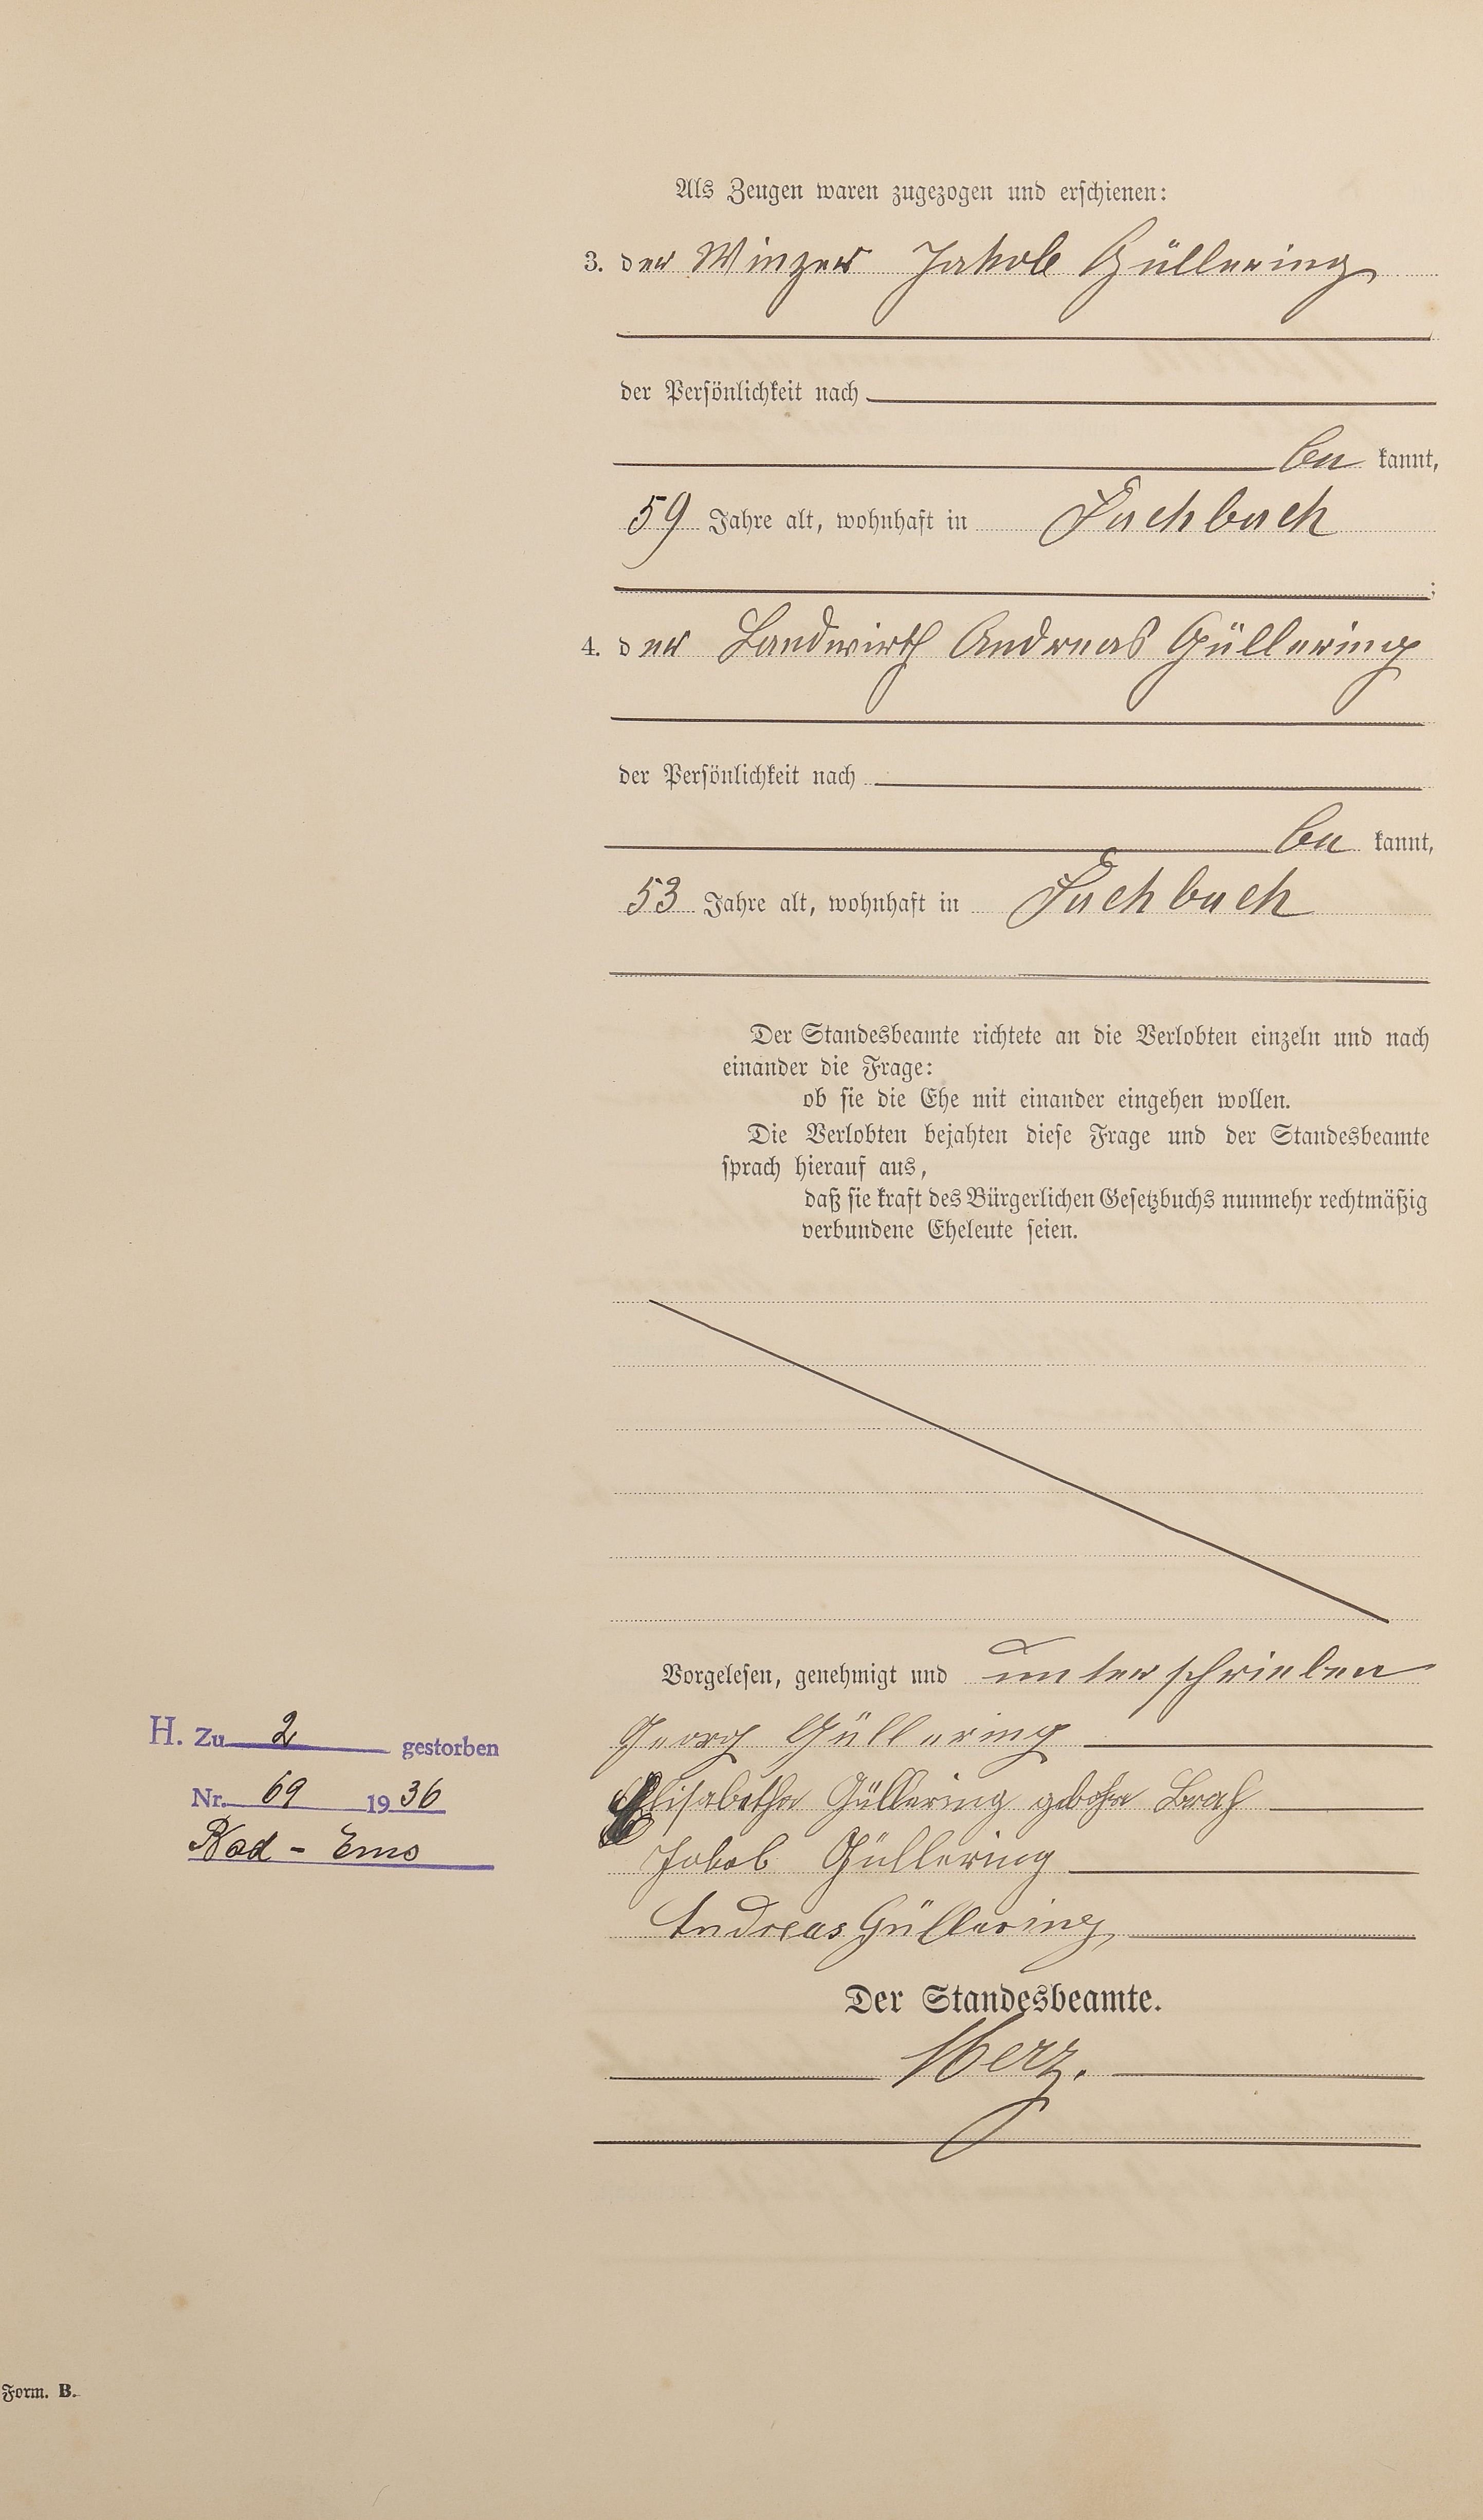 Als Zeugen waren zugezogen und erschienen:
3. der Winzer Jakob Güllering
der Persönlichkeit nach
be kannt,
59 Jahre alt, wohnhaft in Fachbach
;
4. der Landwirth Andreas Güllering
der Persönlichkeit nach
be kannt,
53 Jahre alt, wohnhaft in Fachbach
Der Standesbeamte richtete an die Verlobten einzeln und nach
einander die Frage:
ob sie die Ehe mit einander eingehen wollen.
Die Verlobten bejahten diese Frage und der Standesbeamte
sprach hierauf aus,
daß sie kraft des Bürgerlichen Gesetzbuchs nunmehr rechtmäßig
verbundene Eheleute seien.
Vorgelesen, genehmigt und unterschrieben
Georg Güllering
Elisabetha Güllering gebohre
Jakob Güllering
Andreas Güllering
Der Standesbeamte.
Merz.
H. Zu 2 gestorben
Nr. 69 1936
Bad - Ems
Form. B.